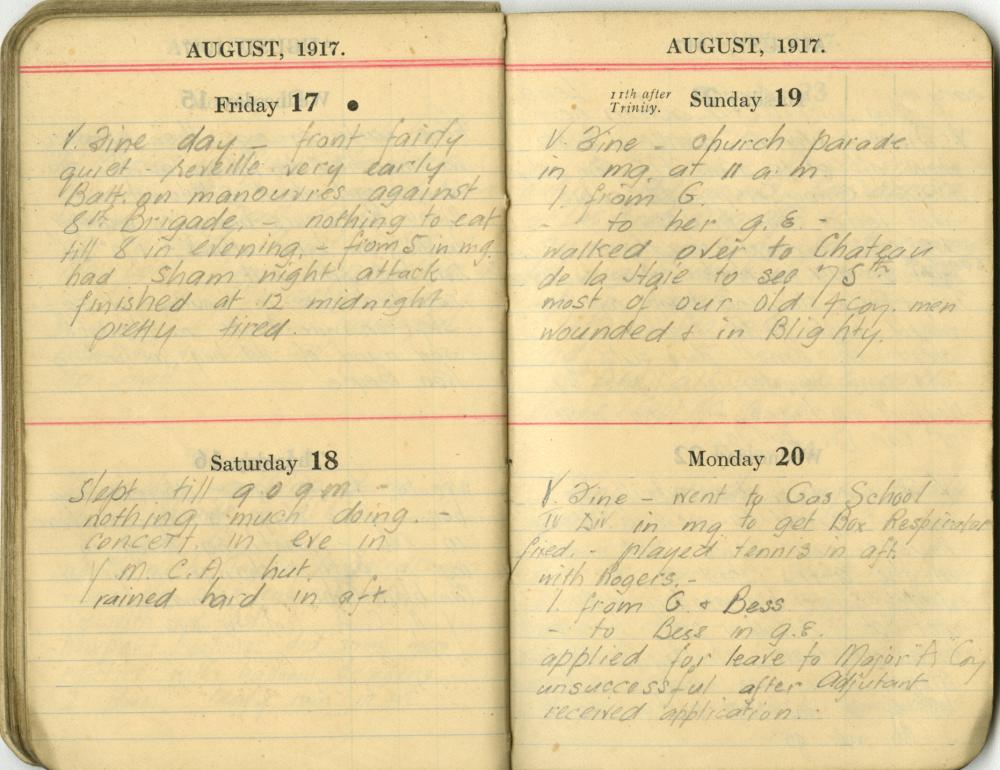 AUGUST, 1917.
Friday 17
V. Fine day - front fairly
quiet - reveille very early
Batt. on manouvres against
8th Brigade. - nothing to eat
till 8 in evening. - from 5 in mg.
had sham night attack
finished at 12 midnight
pretty tired.
Saturday 18
Slept till 9.0 a m -
nothing much doing. -
concert in eve in
Y. M. C. A. hut.
rained hard in aft.
AUGUST, 1917.
11th after
Trinity.
Sunday 19
V. Fine - church parade
in mg. at 11 a m
l. from G.
- to her g.E. -
walked over to Chateau
de la Haie to see 75th
most of our old 4 coy. men
wounded & in Blighty.
Monday 20
V. Fine - went to Gas School
IV Div. in mg to get Box Respirator
fixed. - played tennis in aft.
with Rogers. -
l. from G. & Bess
- to Bess in g.E.
applied for leave to Major "A" Coy
unsuccessful after Adjutant
received application.